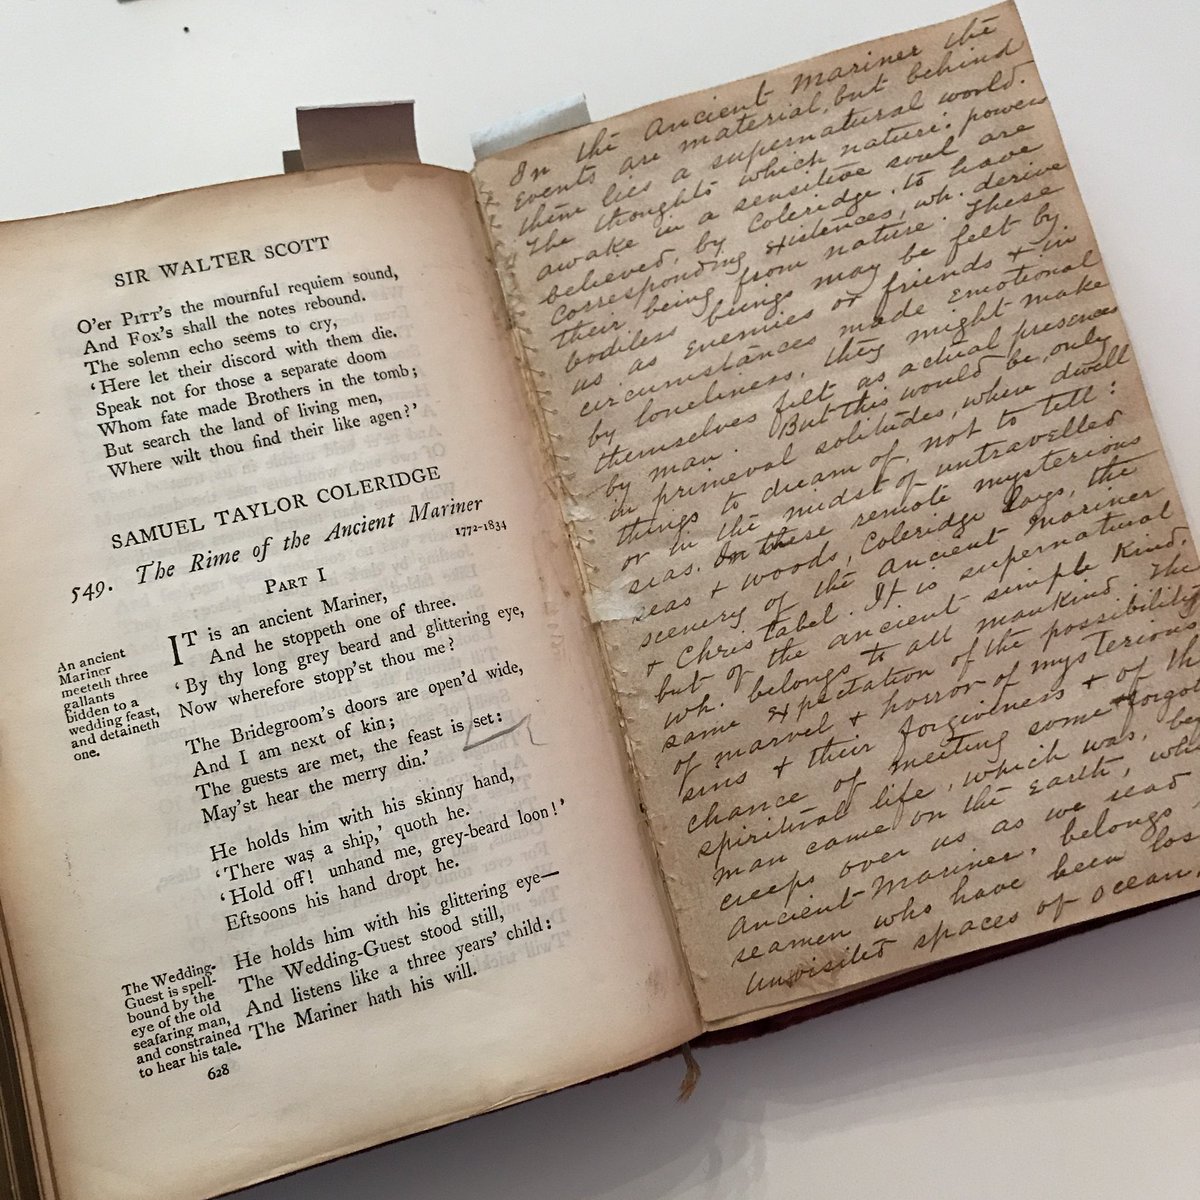 SIR WALTER SCOTT
O'er PITT's the mournful requiem sound,
And Fox's shall the notes rebound.
The solemn echo seems to cry,
‘Here let their discord with them die.
Speak not for those a separate doom
Whom fate made Brothers in the tomb;
But search the land of living men,
Where wilt thou find their like agen?’
SAMUEL TAYLOR COLERIDGE
1772-1834
549. The Rime of the Ancient Mariner
PART I
An ancient
Mariner
meeteth three
gallants
bidden to a
wedding feast,
and detaineth
one.
IT is an ancient Mariner,
And he stoppeth one of three.
‘By thy long grey beard and glittering eye,
Now wherefore stopp'st thou me?
The Bridegroom's doors are open'd wide,
And I am next of kin;
The guests are met, the feast is set:
May'st hear the merry din.’
He holds him with his skinny hand,
‘There was a ship,’ quoth he.
‘Hold off! unhand me, grey-beard loon!’
Eftsoons his hand dropt he.
The Wedding-
Guest is spell-
bound by the
eye of the old
seafaring man,
and constrained
to hear his tale.
He holds him with his glittering eye—
The Wedding-Guest stood still,
And listens like a three years' child:
The Mariner hath his will.
628
In the Ancient Mariner the
events are material, but behind
them lies a supernatural world.
The thoughts which nature's powers
awake in a sensitive soul are
believed, by Coleridge, to have
corresponding existences, wh. derive
their being from nature. These
bodiless beings may be felt by
us as enemies or friends & in
circumstances made emotional
by loneliness, they might make
themselves felt as actual presences
by man. But this would be only
in primeval solitudes, where dwell
things to dream of, not to tell:
or in the midst of untravelled
seas. In these remote mysterious
seas & woods, Coleridge lays, the
scenery of the ancient Mariner
& Christabel. It is supernatural
but of the ancient simple kind,
wh. belongs to all mankind. The
same expectation of the possibility
of marvel & horror of mysterious
sins & their forgiveness & of the
chance of meeting some forgot
spiritual life, which was, be
man came on the earth, wh
creeps over us as we read
Ancient-Mariner, belongs
seamen who have been los
unvisited spaces of ocean.